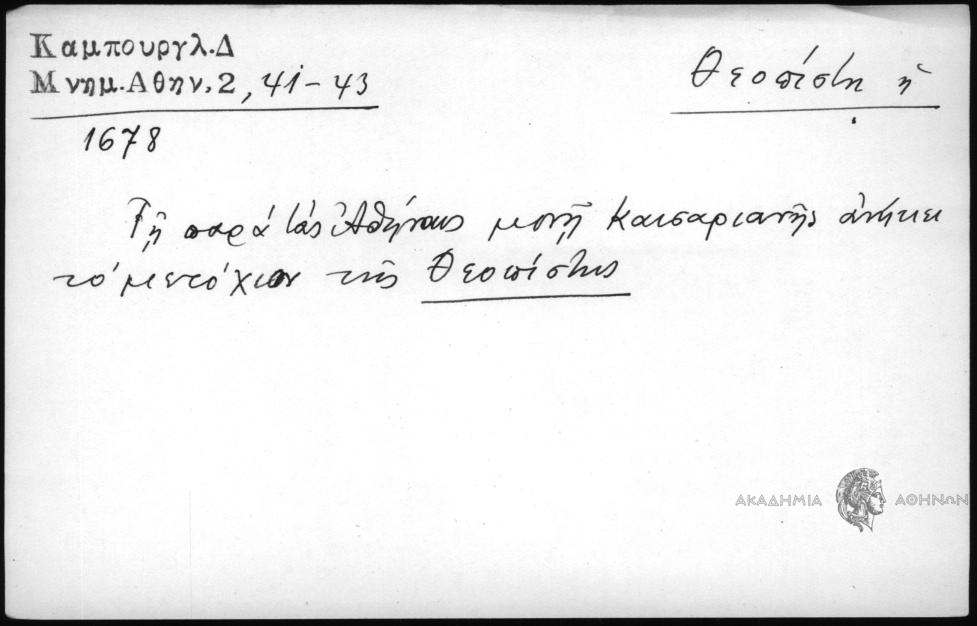 Καμπουργλ.Δ
Μνημ.Αθην.2, 41-43
Θεοπίστη ἡ
1678
Τῇ παρά τάς Ἀθήνας μονῇ Καισαριανῆς ἀνήκει
τό μετόχιον τῆς Θεοπίστης
ΑΚΑΔΗΜΙΑ ΑΘΗΝΩΝ